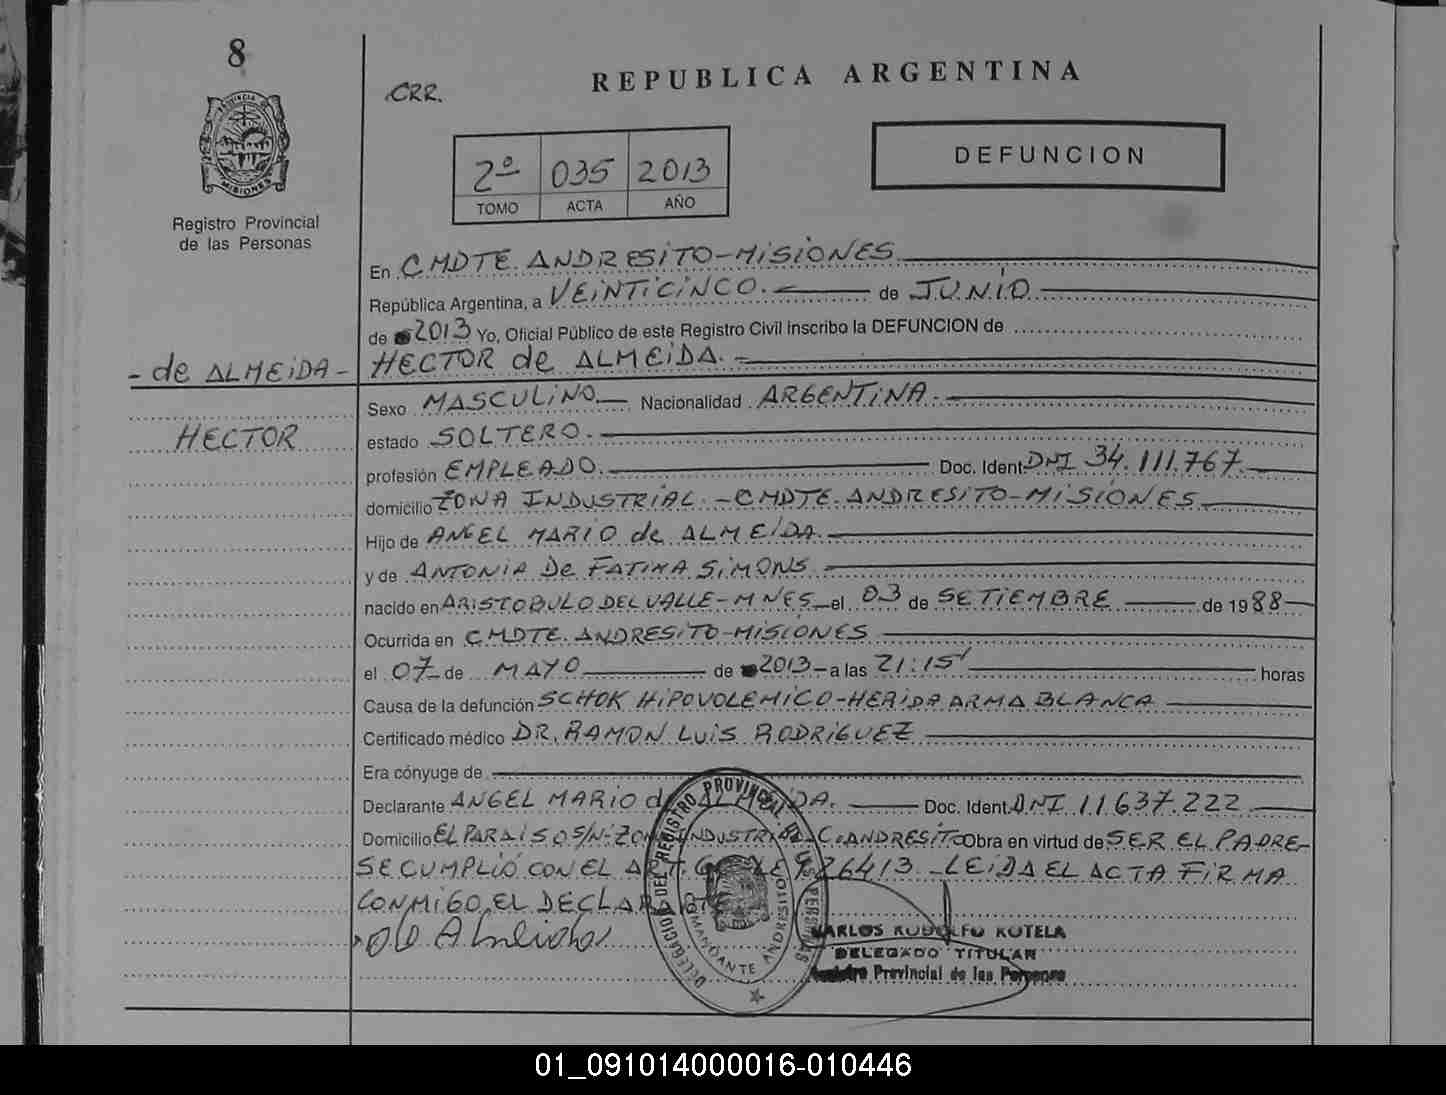 8
PROVINCIA DE
MISIONES
Registro Provincial
de las Personas
CRR.
REPUBLICA ARGENTINA
2º 035 2013
TOMO ACTA AÑO
DEFUNCION
En CMDTE. ANDRESITO-MISIONES
República Argentina, a VEINTICINCO.- de JUNIO
de 2013 Yo, Oficial Público de este Registro Civil inscribo la DEFUNCION de
- de ALMEIDA - HECTOR de ALMEIDA.-
Sexo MASCULINO.- Nacionalidad ARGENTINA.-
HECTOR estado SOLTERO.-
profesión EMPLEADO.- Doc. Ident. DNI 34.111.767.-
domicilio ZONA INDUSTRIAL.-CMDTE. ANDRESITO-MISIONES
Hijo de ANGEL MARIO de ALMEIDA.
y de ANTONIA De FATIMA SIMONS
nacido en ARISTOBULO DEL VALLE-MNES el 03 de SETIEMBRE de 1988
Ocurrida en CMDTE. ANDRESITO-MISIONES
el 07 de MAYO de 2013-a las 21:15 horas
Causa de la defunción SCHOK HIPOVOLEMICO-HERIDA ARMA BLANCA
Certificado médico DR. RAMON LUIS RODRIGUEZ
Era cónyuge de
Declarante ANGEL MARIO de ALMEIDA. Doc. Ident. DNI 11637.222
Domicilio EL PARAISO S/N-ZONA INDUSTRIAL C.ANDRESITO Obra en virtud de SER EL PADRE-
SE CUMPLIÓ CON EL ART. LEY 26413 -LEIDA EL ACTA FIRMA
CONMIGO EL DECLARANTE
de Almeida
DELEGACION DEL REGISTRO PROVINCIAL DE LAS PERSONAS
COMANDANTE ANDRESITO
CARLOS RODOLFO ROTELA
DELEGADO TITULAR
Registro Provincial de las Personas
01_091014000016-010446